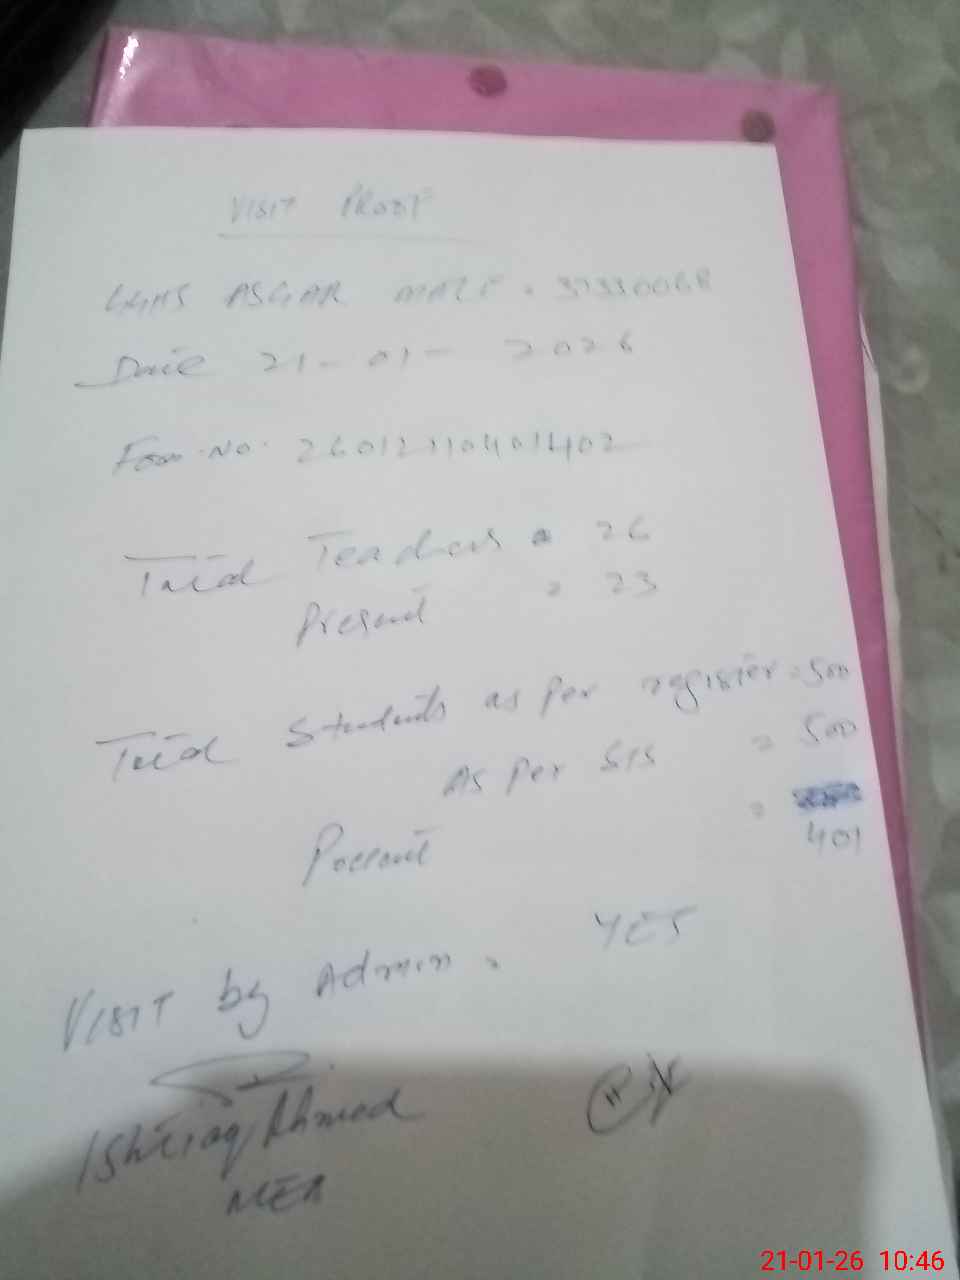 VISIT PROOF
GGHS ASGAR MALL = 37330068
Date 21-01-2026
Form No.
Total Teachers = 26
Present = 23
Total Students as per register = 500
As per SIS = 500
Present =
401
Visit by Admin = YES
Ishtiaq Ahmad
MEA
21-01-26 10:46